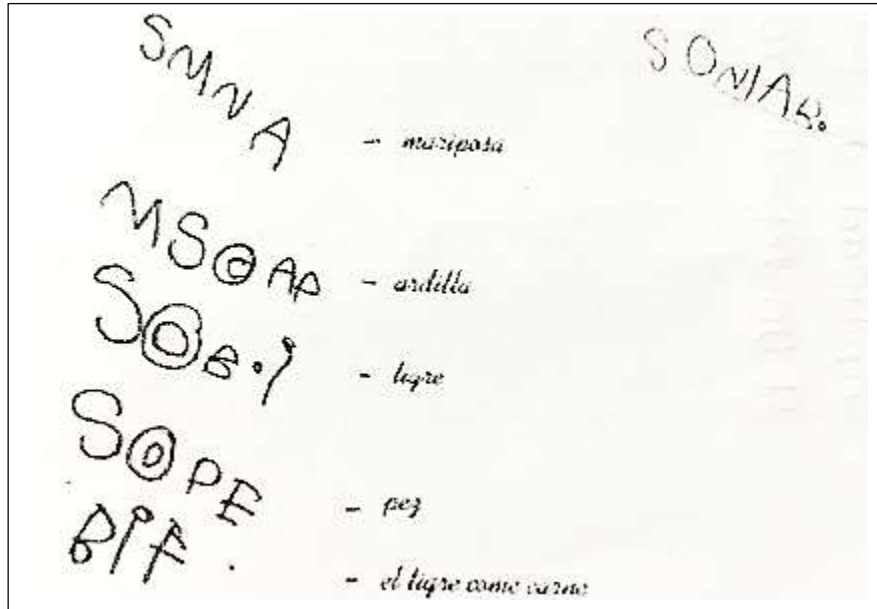 SMNA
SOMAB.
- mariposa
MS@AP - ardilla
SOB.I
- tigre
SOPE
- pez
BIF.
- el tigre come carne